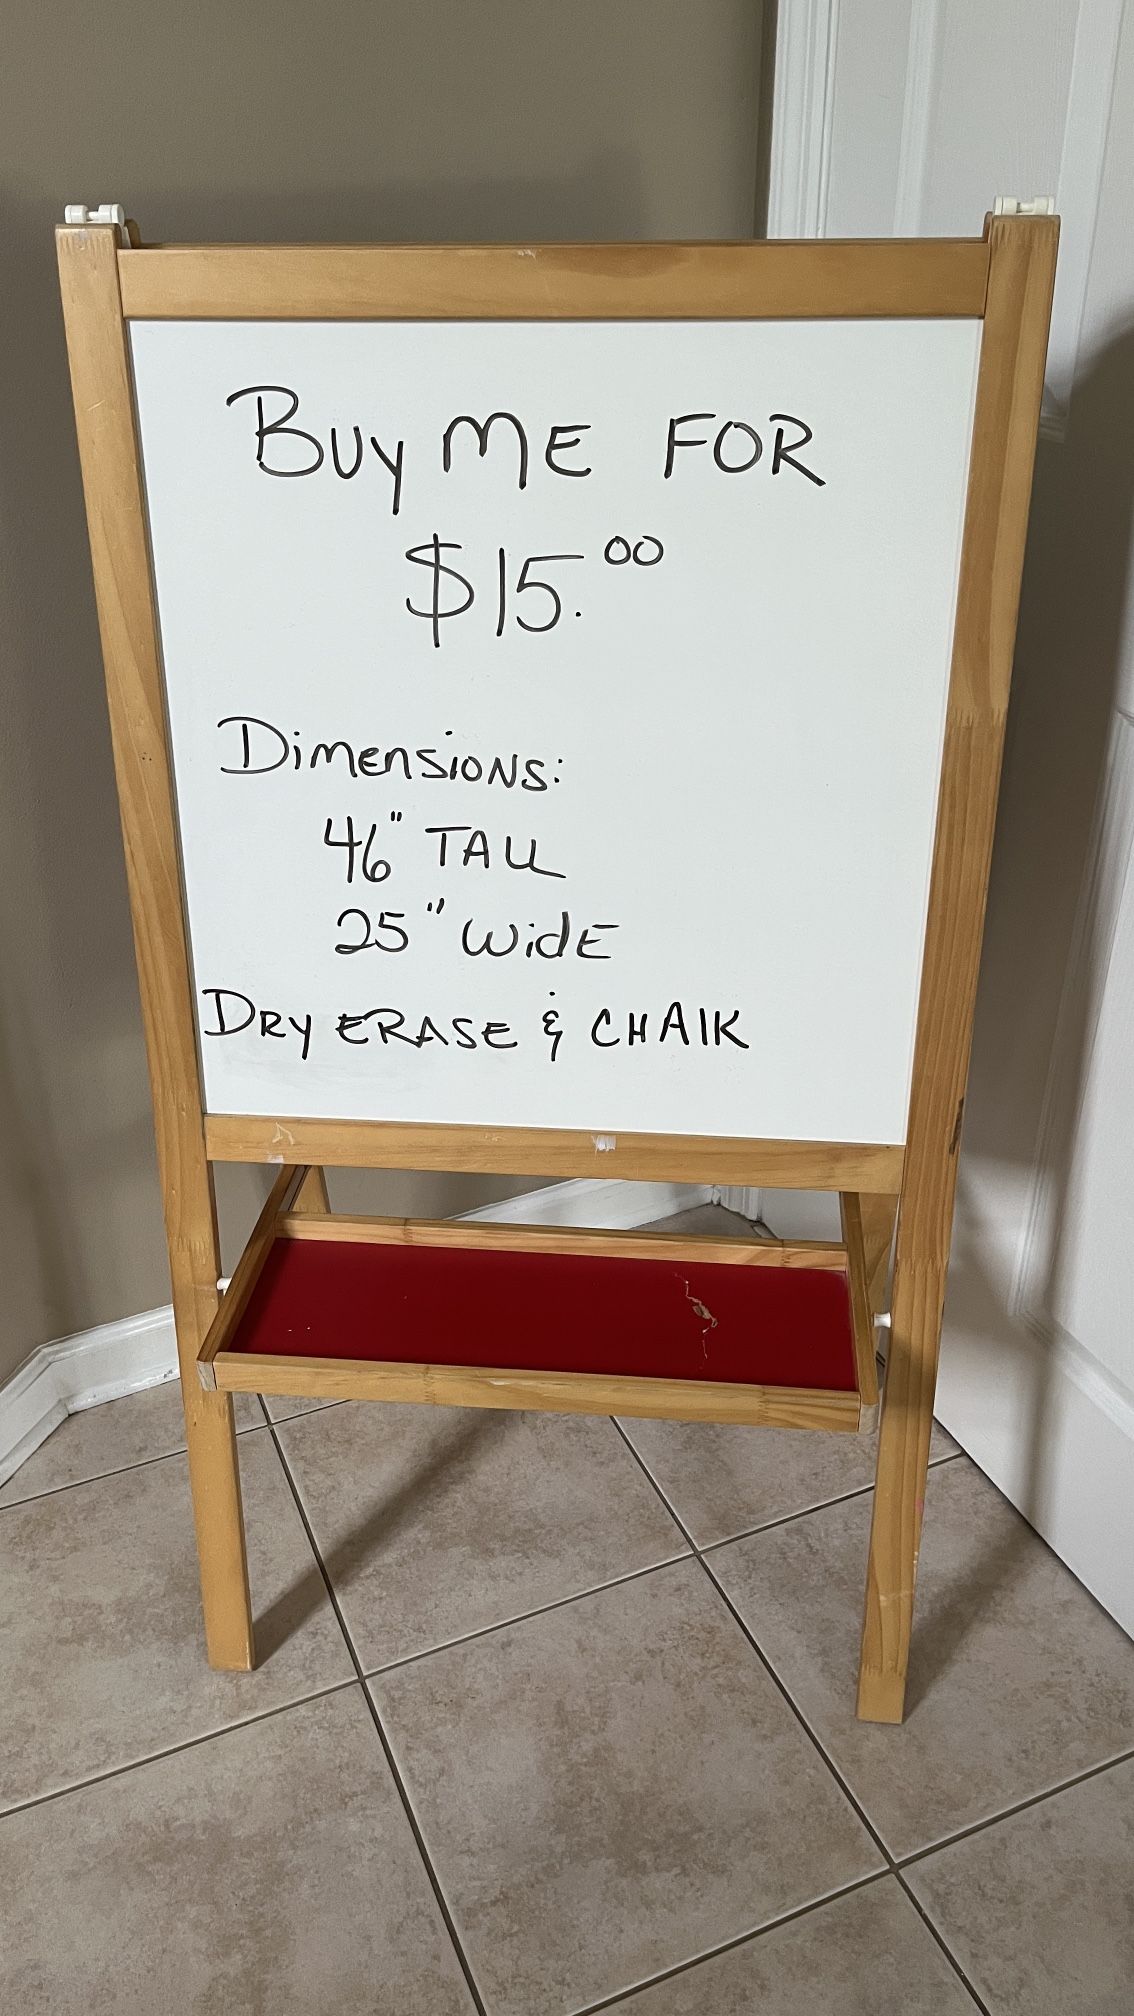 Buy ME FOR
$15.00
Dimensions:
46" TALL
25" WidE
DRY ERASE & CHAlK